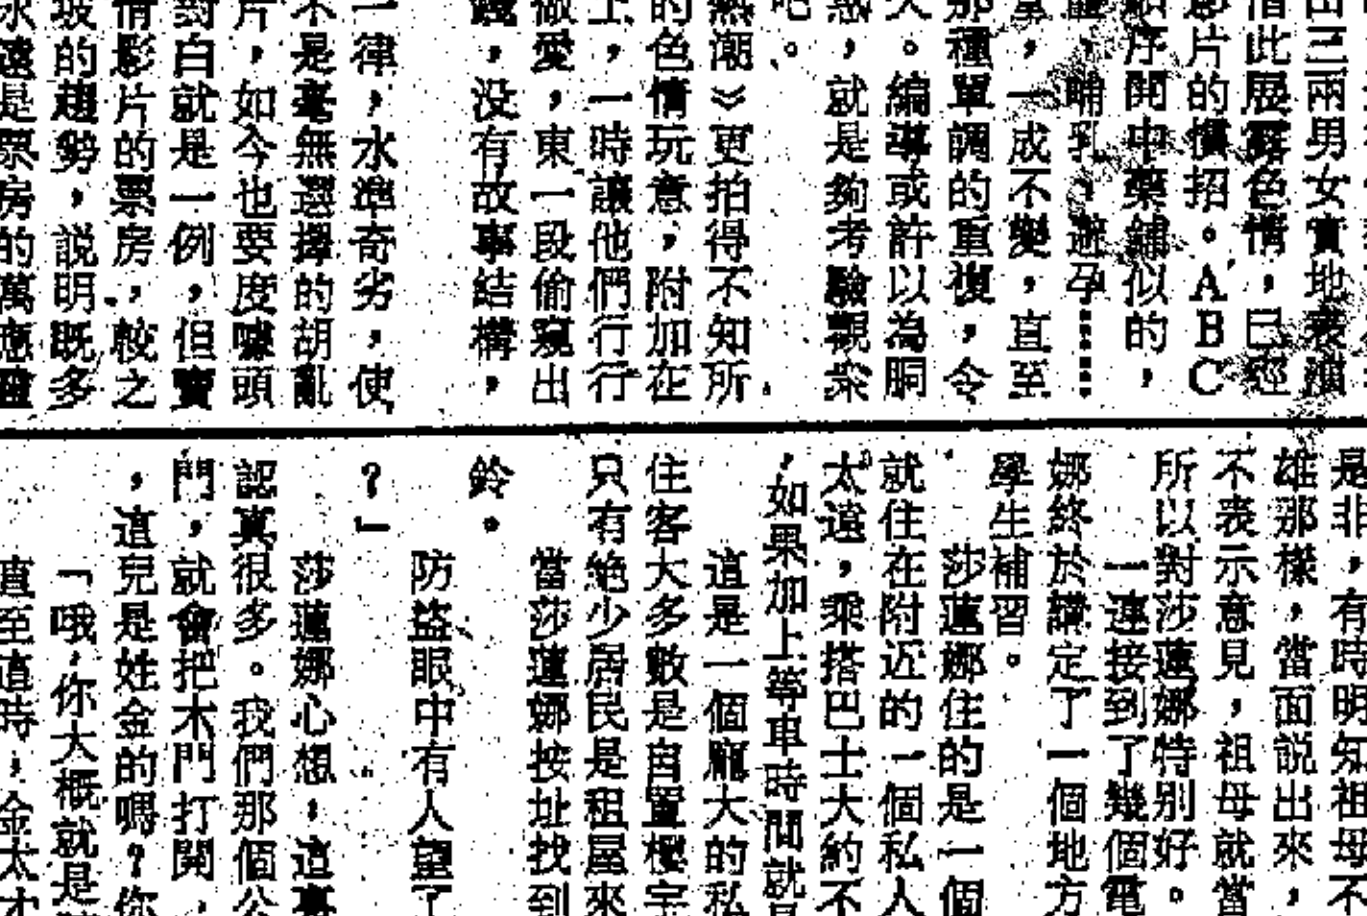 出三兩男女實地表演
借此展露色情，已經
影片的慣招。ABC
順序開中藥鋪似的，
哺乳、避孕……
，一成不變，直至
那種單調的重複，令
久。編導或許以為胴
惑，就是夠考驗觀眾
吧。
熱潮》更拍得不知所
的色情玩意，附加在
上，一時讓他們行行
做愛，東一段偷窺出
錢，没有故事結構，
一律，水準奇劣，使
不是毫無選擇的胡亂
片，如今也要度噱頭
對白就是一例，但賣
情影片的票房，較之
坡的趨勢，説明既多
永遠是票房的萬應靈
是非，有時明知祖母不
雄那樣，當面説出來，
不表示意見，祖母就當
所以對莎蓮娜特別好。
一連接到了幾個電
娜終於講定了一個地方
學生補習。
莎蓮娜住的是一個
就住在附近的一個私人
太遠，乘搭巴士大約不
，如果加上等車時間就
這是一個龐大的私
住客大多數是自置樓宇
只有絶少居民是租屋來
當莎蓮娜按址找到
鈴。
防盜眼中有人望了
？」
莎蓮娜心想，這裏
認真很多。我們那個公
門，就會把木門打開，
，這兒是姓金的嗎？你
「哦，你大概就是
直至這時，金太才